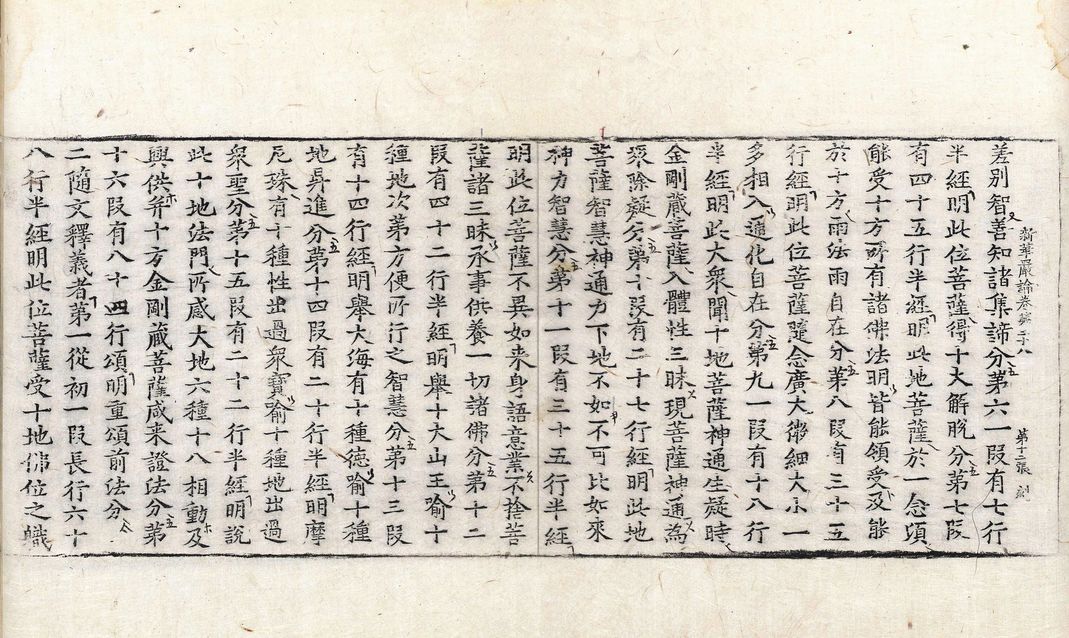 新華嚴論卷第二十八 第十二張
差別智善知諸集諦分第六一段有七行
半經明此位菩薩得十大解脫分第七段
有四十五行半經明此地菩薩於一念頃
能受十方所有諸佛法明皆能領受及能
於十方雨法雨自在分第八段有三十五
行經明此位菩薩隨念廣大微細大小一
多相入通化自在分第九一段有十八行
半經明此大衆聞十地菩薩神通生疑時
金剛藏菩薩入體性三昧現菩薩神通爲
衆除疑分第十段有二十七行經明此地
菩薩智慧神通力下地不如不可比如來
神力智慧分第十一段有三十五行半經
明此位菩薩不異如來身語意業不捨菩
薩諸三昧承事供養一切諸佛分第十二
段有四十二行半經明舉十大山王喻十
種地次第方便所行之智慧分第十三段
有十四行經明舉大海有十種德喻十種
地昇進分第十四段有二十行半經明摩
尼珠有十種性出過衆寶喻十種地出過
衆聖分第十五段有二十二行半經明說
此十地法門所感大地六種十八相動及
興供并十方金剛藏菩薩咸来證法分第
十六段有八十四行頌明重頌前法分
二隨文釋義者第一從初一段長行六十
八行半經明此位菩薩受十地佛位之職